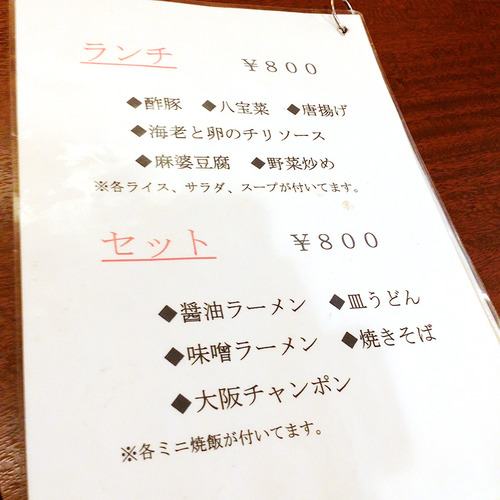 ランチ ￥８００
◆酢豚 ◆八宝菜 ◆唐揚げ
◆海老と卵のチリソース
◆麻婆豆腐 ◆野菜炒め
※各ライス、サラダ、スープが付いてます。
セット ￥８００
◆醤油ラーメン ◆皿うどん
◆味噌ラーメン ◆焼きそば
◆大阪チャンポン
※各ミニ焼飯が付いてます。